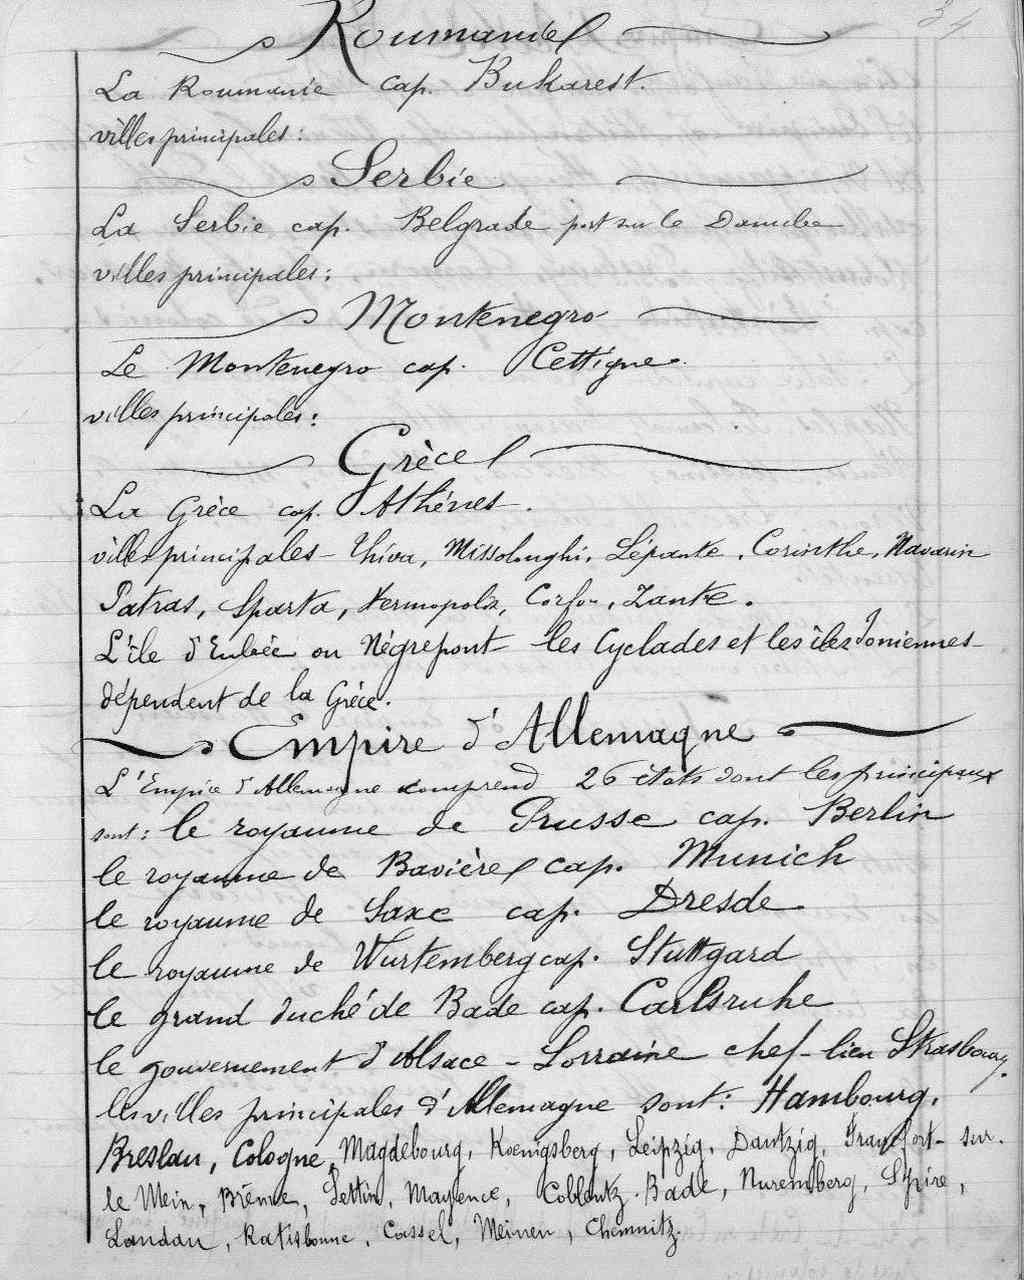 34
Roumanie
La Roumanie cap. Bukarest.
villes principales:
Serbie
La Serbie cap. Belgrade port sur le Danube
villes principales:
Montenegro
Le Montenegro cap. Cettigne.
villes principales:
Grèce
La Grèce cap. Athènes.
villes principales - Thiva, Missolonghi, Lépante, Corinthe, Navarin
Patras, Sparta, Hermopolis, Corfou, Zante.
L'île d'Eubée ou Négrepont les Cyclades et les îles Ioniennes
dépendent de la Grèce.
Empire d'Allemagne
L'Empire d'Allemagne comprend 26 états dont les principaux
sont: le royaume de Prusse cap. Berlin
le royaume de Bavière cap. Munich
le royaume de Saxe cap. Dresde
le royaume de Wurtemberg cap. Stuttgard
le grand duché de Bade cap. Carlsruhe
le gouvernement d'Alsace - Lorraine chef-lieu Strasbourg.
les villes principales d'Allemagne sont: Hambourg,
Breslau, Cologne, Magdebourg, Koenigsberg, Leipzig, Dantzig, Francfort-sur-
le Mein, Brême, Settin, Mayence, Coblentz. Bade, Nuremberg, Spire,
Landau, Ratisbonne, Cassel, Meinen, Chemnitz.